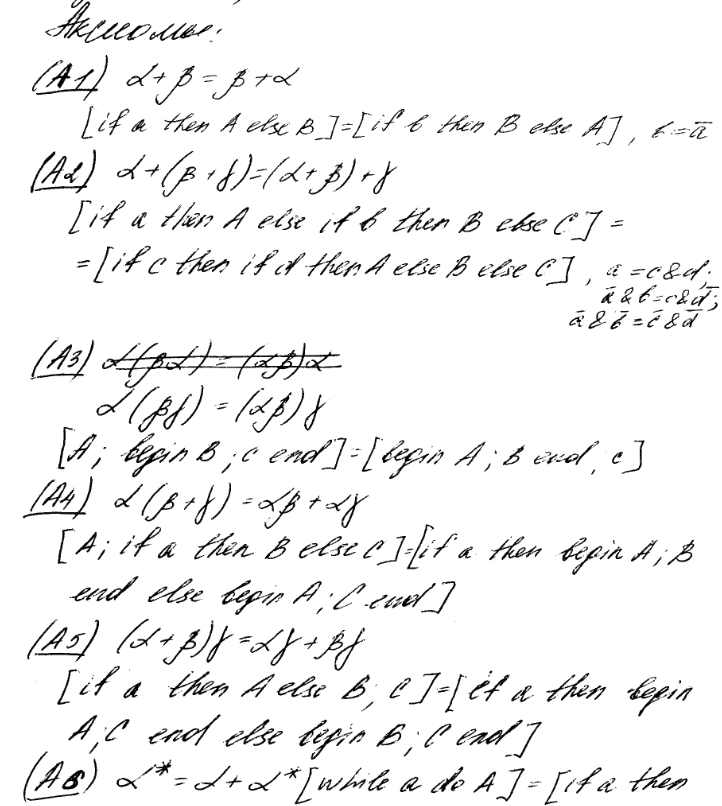 Аксиомы:
(A1) α+β=β+α
[if a then A else B]=[if b then B else A], b=ā
(A2) α+(β+γ)=(α+β)+γ
[if a then A else if b then B else C] =
=[if c then if d then A else B else C], a=c&d;
ā&b=c&d̄;
ā&b̄=c̄&d̄
(A3) α(βα)=(αβ)α
α(βγ)=(αβ)γ
[A; begin B; C end]=[begin A; B end, C]
(A4) α(β+γ)=αβ+αγ
[A; if a then B else C]=[if a then begin A; B
end else begin A; C end]
(A5) (α+β)γ=αγ+βγ
[if a then A else B; C]=[if a then begin
A; C end else begin B; C end]
(A6) α*=α+α* [while a do A]=[if a then